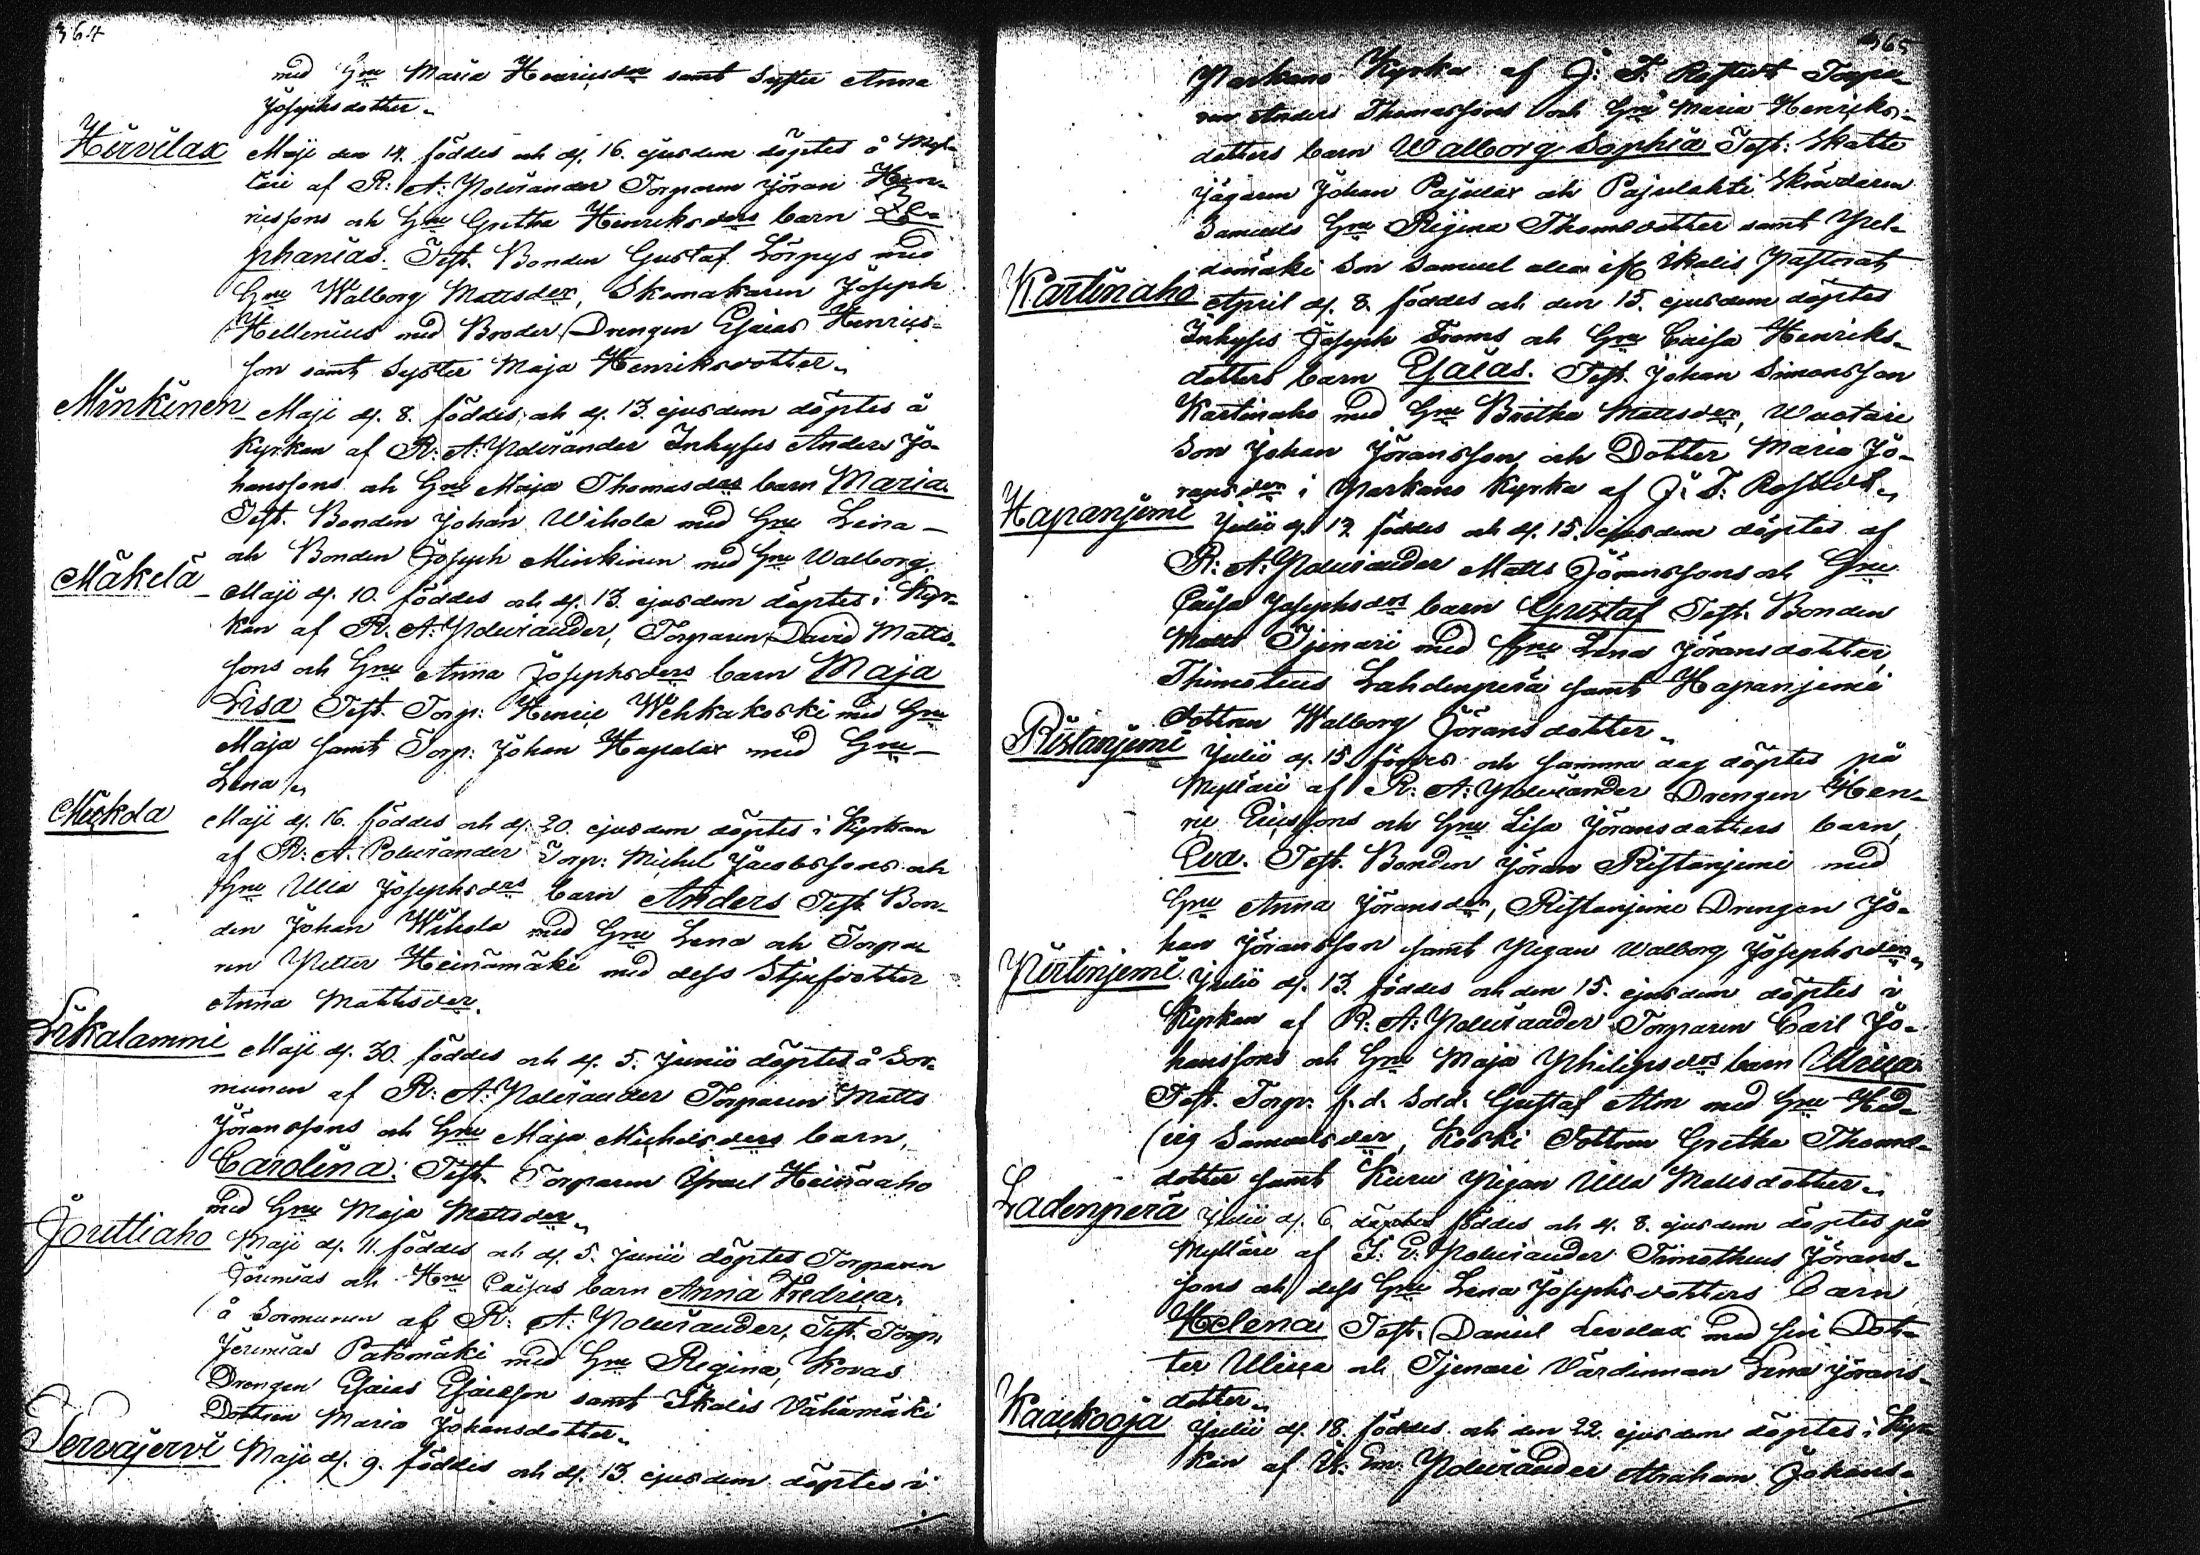 364
med Gru Maria Henricsder samt Syster Anna
Josephsdotter.
Hirvilax Maji den 14. föddes och d. 16. ejusdem döptes å Myl-
läri af R: A: Polviander Torparen Jöran Hen-
ricssons och Gru Gretha Henriksders barn Ze-
phanias. Test. Bonden Gustaf Lörpys med
Gru Walborg Mattsder, Skomakaren Joseph
Hellenius med Broder Drengen Esaias Henrics-
son samt Syster Maja Henriksdotter.
Minkinen Maji d. 8. föddes och d. 13. ejusdem döptes å
Kyrkan af R: A: Polviander Inhyses Anders Jo-
hanssons och Gru Maja Thomasders barn Maria.
Test. Bonden Johan Wihola med Gru Lena
och Bonden Joseph Minkinen med Gru Walborg.
Mäkelä Maji d. 10. föddes och d. 13. ejusdem döptes i Kyr-
kan af R. A: Polviander, Torparen David Matts-
sons och Gru Anna Josephsders barn Maja
Lisa Test. Torp: Henric Wehkakoski med Gru
Maja samt Torp: Johan Hapalax med Gru
Lena
Mickola Maji d. 16. föddes och d. 20. ejusdem döptes i Kyrkan
af R: A. Polviander Torp: Michel Jacobssons och
Gru Ulla Josephsders barn Anders Test. Bon-
den Johan Wihola med Gru Lena och Torpa-
ren Petter Heinämäki med dess Stjufdotter
Anna Mattsder.
Likalammi Maji d. 30. föddes och d. 5. Junii döptes å Sor-
munen af R: A: Polviander Torparen Matts
Jöranssons och Gru Maja Michelsders barn,
Carolina: Test. Torparen Israel Heinäaho
med Gru Maja Mattsder.
Jouttiaho Maji d. 11. föddes och d. 5. Junii döptes Torparen
Jeremias och Hru Caisas barn Anna Fredrica.
å Sormunen af R: A: Polviander, Test. Torp:
Jeremias Patomäki med Gru Regina, Kovas
Drengen Esaias Esaiesson samt Ikalis Vähämäki
Dottren Maria Johansdotter.
Tervajervi Maji d. 9. föddes och d. 13. ejusdem döptes i
365
Parkano Kyrka af J: F: Rostedt Torpa-
ren Anders Thomassons och Gru Maria Henriks-
dotters barn Walborg Sophia Test: Skatte
Jägaren Johan Pajulax och Pajulahti Skrädaren
Samuels Gru Regina Thomedotter samt Pel-
domäki Son Samuel alla ifr Ikalis Pastorat
Kartinaho April d. 8. föddes och den 15. ejusdem döptes
Inhyses Joseph Froms och Gru Caisa Henriks-
dotters barn Esaias. Test. Johan Simonsson
Kartinaho med Gru Britha Mattsder, Wuotari
Son Johan Jöransson och Dotter Maria Jö-
ransder i Parkano Kyrka af J: F: Rostedt.
Hapanjemi Julii d. 12 föddes och d. 15. ejusdem döptes af
R: A: Polviander Matts Jöranssons och Gru
Caisa Josephsders barn Gustaf Test. Bonden
Matts Tjenari med Gru Lena Jöransdotter,
Thimoteus Lahdenperä samt Hapanjemi
dottren Walborg Jöransdotter.
Ristanjemi Julii d. 15 föddes och samma dag döptes på
Mylläri af R: A: Polviander Drengen Hen-
ric Ericssons och Gru Lisa Jöransdotters barn,
Eva. Test. Bonden Jöran Ristanjemi med
Gru Anna Jöransder, Ristanjemi Drengen Jo-
han Jöransson samt Pigan Walborg Josephsder.
Pirtinjemi Julii d. 13. föddes och den 15. ejusdem döptes i
Kyrkan af R: A: Polviander Torparen Carl Jo-
hanssons och Gru Maja Philipsders barn Ulrica.
Test. Torp. f. d. Sold. Gustaf Alm med Gru Hed-
vig Samuelsder, Koski Dottren Gretha Thomas-
dotter samt Kuru Pigan Ulla Mattsdotter.
Ladenperä Julii d. 6. döptes föddes och d. 8. ejusdem döptes på
Mylläri af I: E: Polviander Timotheus Jörans-
sons och dess Gru Lena Josephsdotters barn
Helena Test. Daniel Levelax med sin Dot-
ter Ulrica och Tjenari Värdinnan Lena Jörans-
dotter.
Kaackooja Julii d. 18. föddes och den 22. ejusdem döptes i Kyr-
kan af Em: Polviander Abraham Johans-